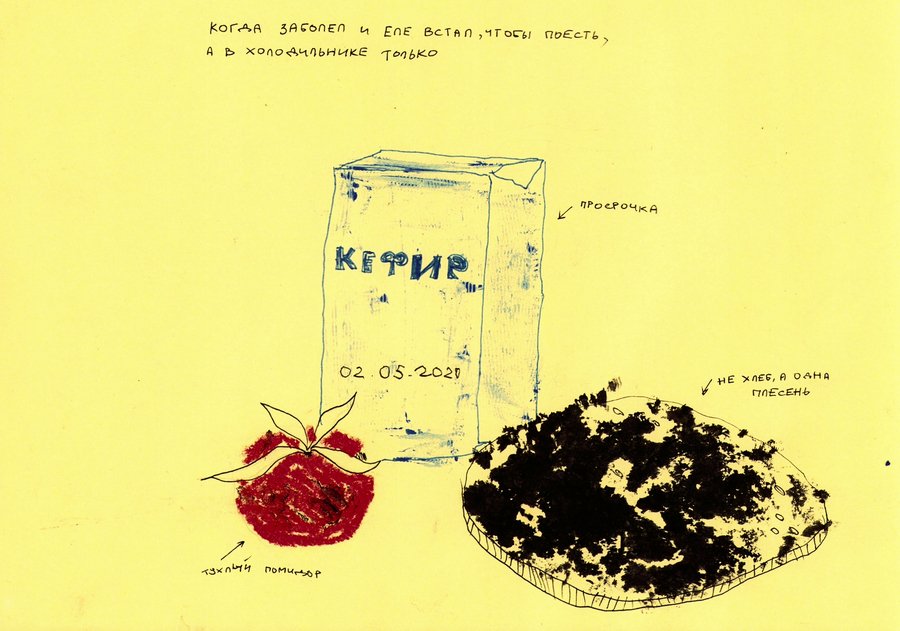 КОГДА ЗАБОЛЕЛ И ЕЛЕ ВСТАЛ, ЧТОБЫ ПОЕСТЬ,
А В ХОЛОДИЛЬНИКЕ ТОЛЬКО
ПРОСРОЧКА
КЕФИР
02.05.2020
НЕ ХЛЕБ, А ОДНА
ПЛЕСЕНЬ
ТУХЛЫЙ ПОМИДОР